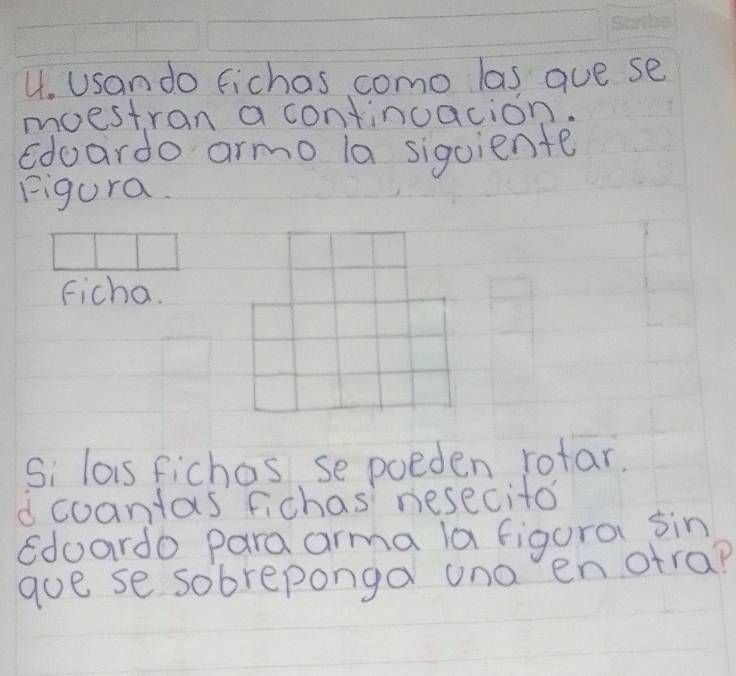 4. Usando fichas como las que se
muestran a continuación.
Eduardo armo la siguiente
Figura.
Ficha.
Si las fichas se pueden rotar.
¿cuantas fichas nesecito
Eduardo para arma la figura sin
que se sobreponga una en otra?